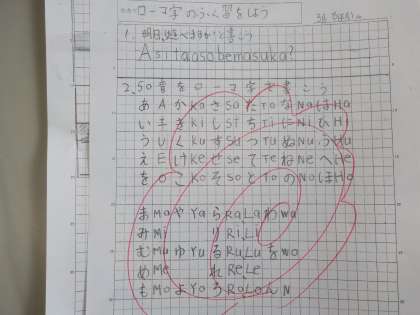 ローマ字のれんしゅうをしよう
1. 明日遊べますかと書こう
Asitaasobemasuka?
2. 50音をローマ字で書こう
あAかKaさSaたTaなNaはHa
いIきKiしSIちTiにNiひHi
うUくKuすSUつTuぬNuふHU
えEけKeせSeてTeねNeへHe
をOこKoそSoとToのNoほHo
まMaやYaらRaLaわWa
みMiりRi,Li
むMuゆYuるRu,Luをwo
めMeれRe,Le
もMoよYoろRoLoんN